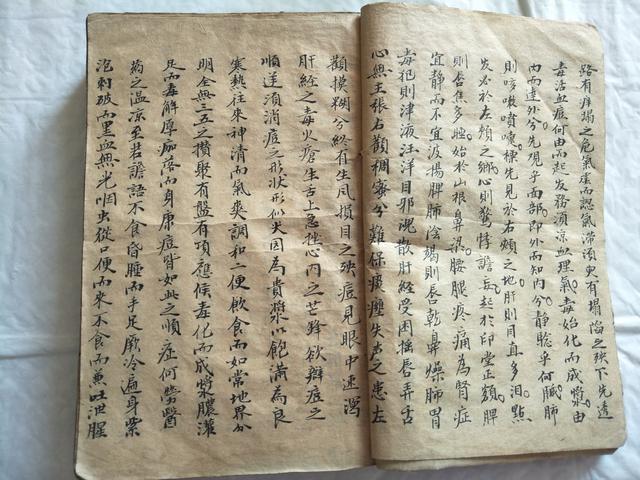 路有痒塌之危氣虛而認氣滯須更有塌陷之殃下先透
毒活血症何由而起发務須凉血理氣毒始化而成漿由
内而達外兮先現乎面部即外而知内兮静聼乎何臓肺
則咳嗽噴嚏標先見於右頰之地肝則目直多泪點
发名於左頰之鄉心則驚悸譫妄起於印堂正額脾
則吞焦多睡始於山根鼻梁腰腿疼痛為腎症
宜静而不宜波揚脾肺陰竭則唇乾鼻燥肺胃
毒犯則津液汪洋目邪視散肝經受困摇唇弄舌
心無主張右顴稠密兮難保痰壅失声之患左
顴模糊兮終有生風損目之殃痘見眼中速瀉
肝經之毒火瘡生舌上急挫心内之芒鋒欲辯痘之
順逆須消痘之形状形似尖因為貴漿以飽滿為良
寒熱往來神清而氣爽調和二便飲食而如常地界分
明全無三五之攅聚有盤有頂應候毒化而成漿膿灌
足而毒解厚痂落而身康痘皆如此之順症何勞醫
药之温凉至若譫語不食昏睡而手足厥冷遍身紫
泡刺破而黑血無光蛔虫從口便而來不食而兼吐泄腥